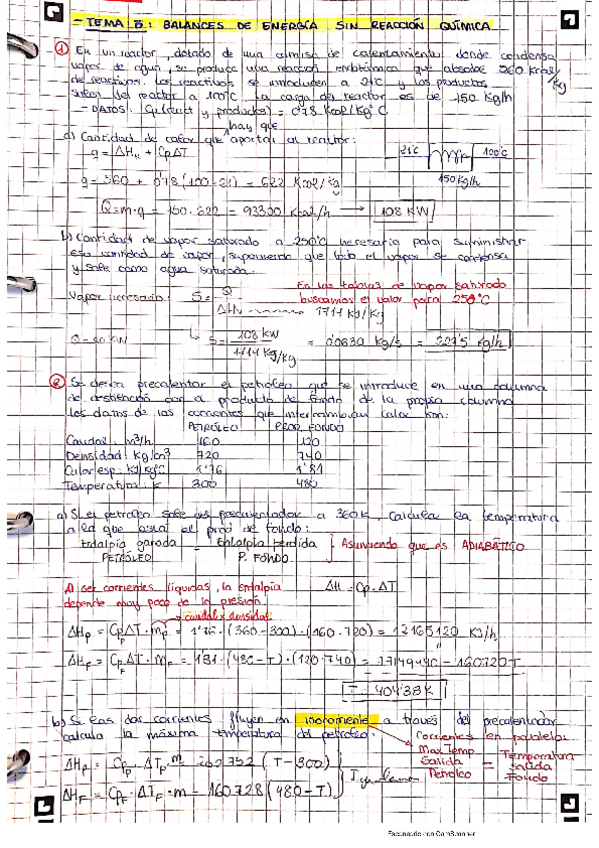 - TEMA 5: BALANCES DE ENERGÍA SIN REACCIÓN QUÍMICA
① En un reactor, dotado de una camisa de calentamiento donde condensa
vapor de agua, se produce una reacción endotérmica que absorbe 560 Kcal/kg
de reactivos. Los reactivos se introducen a 21ºC y los productos
salen del reactor a 100ºC. La carga del reactor es de 150 Kg/h
- DATOS: Cp(react y productos) = 0'78 Kcal/KgºC
a) Cantidad de calor que hay que aportar al reactor:
q = ΔHr + CpΔT
21ºC 100ºC
150 kg/h
q = 560 + 0'78 (100-21) = 622 Kcal/kg
Q = m·q = 150·622 = 93300 Kcal/h → 108 KW
b) Cantidad de vapor saturado a 250ºC necesaria para suministrar
esa cantidad de vapor, suponiendo que todo el vapor se condensa
y sale como agua saturada.
En las tablas de vapor saturado
buscamos el valor para 250ºC
Vapor necesario: S = Q/ΔHv
1714 KJ/Kg
Q = en KW → S = 108 KW / 1714 KJ/Kg = 0'0630 Kg/s = 227'5 Kg/h
② Se desea precalentar el petróleo que se introduce en una columna
de destilación con el producto de fondo de la propia columna
los datos de las corrientes que intercambian calor son:
PETRÓLEO PROD. FONDO
Caudal: m³/h 160 120
Densidad: Kg/m³ 720 740
Calor esp: KJ/KgºC 1'76 1'81
Temperatura: K 300 480
a) Si el petróleo sale del precalentador a 360K, calcula la temperatura
a la que estará el prod de fondo:
Entalpía ganada = Entalpía perdida } Asumiendo que es ADIABÁTICO
PETRÓLEO P. FONDO
Al ser corrientes líquidas, la entalpía
depende muy poco de la presión
ΔH = Cp·ΔT
caudal x densidad
ΔHp = CpΔT·mp = 1'76·(360-300)·(160·720) = 12165120 KJ/h
ΔHF = CpF·ΔT·mF = 1'81·(480-T)·(120·740) = 77149440 - 160728T
T = 404'38K
b) Si las dos corrientes fluyen en isocorriente a través del precalentador
calcula la máxima temperatura del petróleo:
Corrientes en paralelo:
Max Temp Salida Petróleo = Temperatura salida Fondo
ΔHp = Cpp·ΔTp·m = 202752 (T-300)
ΔHF = CpF·ΔTF·m = 160728 (480-T)
Escaneado con CamScanner